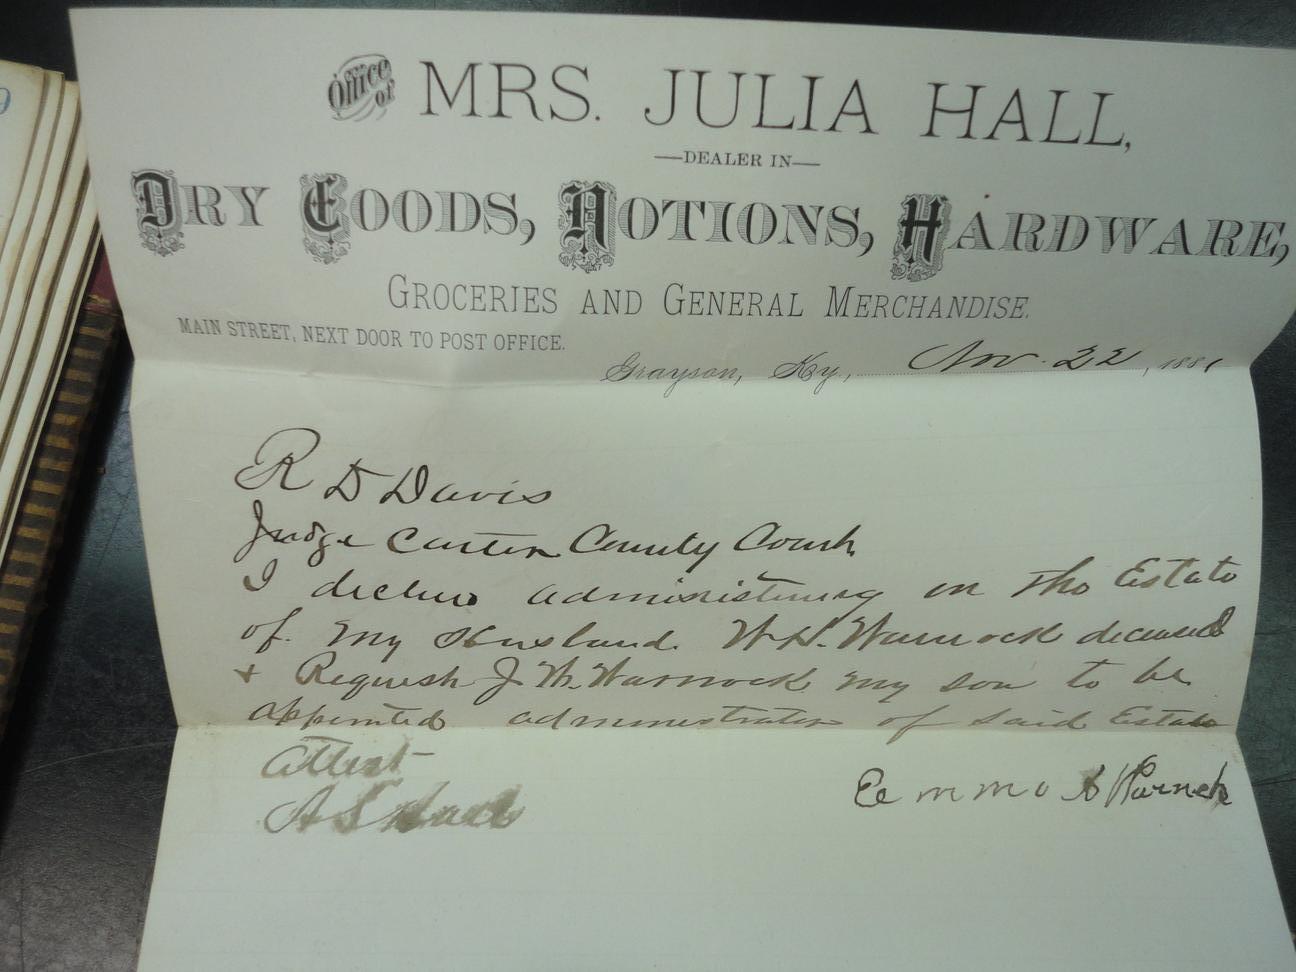 Office of MRS. JULIA HALL,
—DEALER IN—
DRY GOODS, NOTIONS, HARDWARE,
GROCERIES AND GENERAL MERCHANDISE.
MAIN STREET, NEXT DOOR TO POST OFFICE.
Grayson, Ky., Nov. 22, 1881
R D Davis
Judge Carter County Court
I decline administering on the Estate
of my Husband W. H. Warnock deceased
+ Request J W. Warnock my son to be
appointed administrator of said Estate
attest
Eemma Warnck
9